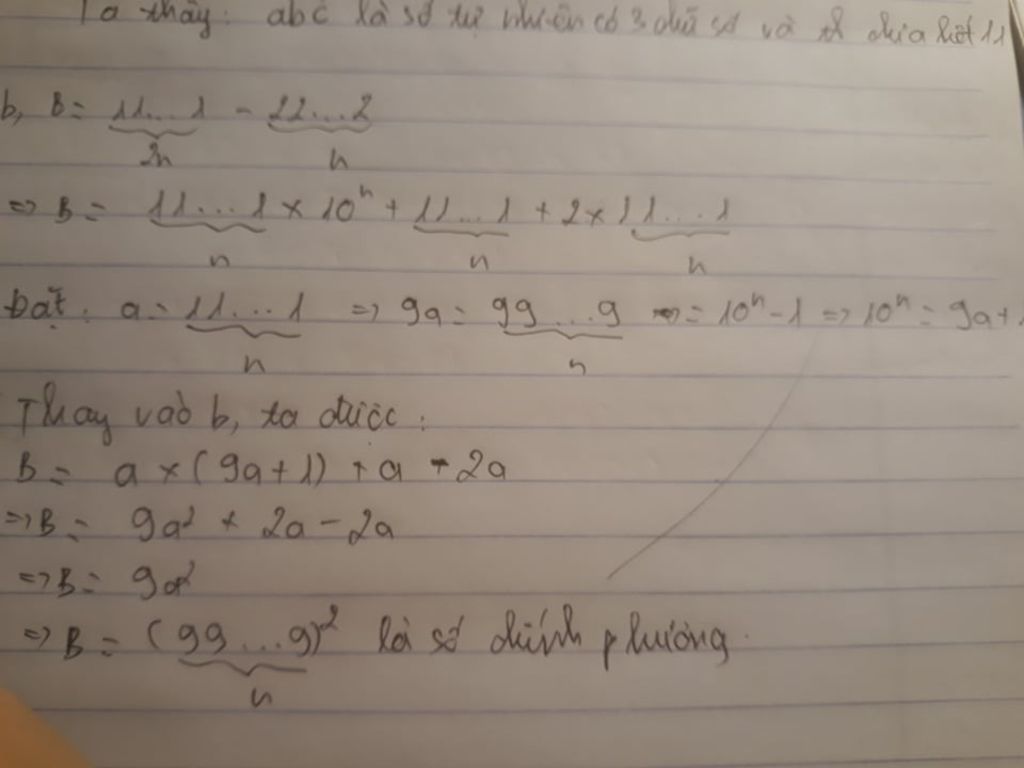 Ta thấy: abc là số tự nhiên có 3 chữ số và chia hết 11
b, B = 11...1 - 22...2
2n n
=> B = 11...1 × 10^n + 11...1 + 2 × 11...1
n n n
Đặt: a = 11...1 => 9a = 99...9 = 10^n - 1 => 10^n = 9a + 1
n n
Thay vào b, ta được:
B = a × (9a + 1) + a - 2a
=> B = 9a² + 2a - 2a
=> B = 9a²
=> B = (99...9)² là số chính phương.
n